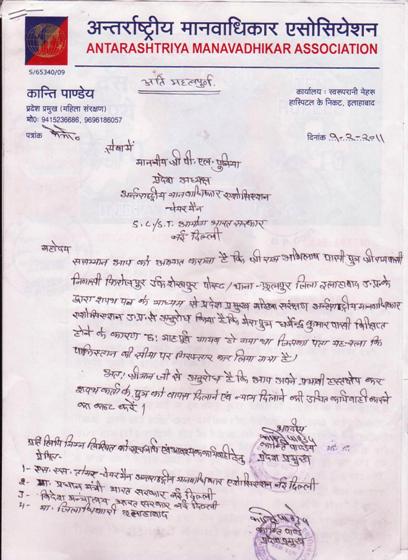 अन्तर्राष्ट्रीय मानवाधिकार एसोसियेशन
ANTARASHTRIYA MANAVADHIKAR ASSOCIATION
S/65340/09
अति महत्वपूर्ण
कान्ति पाण्डेय
प्रदेश प्रमुख (महिला संरक्षण)
मो0: 9415236686, 9696186057
कार्यालय : स्वरुपरानी नेहरू
हास्पिटल के निकट, इलाहाबाद
पत्रांक
दिनांक 9-2-2011
सेवा में
माननीय श्री पी. एल. पुनिया
प्रदेश अध्यक्ष
अर्न्तराष्ट्रीय मानवाधिकार एसोसिएशन
चेयरमैन
S.C./S.T. आयोग भारत सरकार
नई दिल्ली
महोदय
ससम्मान आप को अवगत कराना है कि श्री राम अभिलाष पासी पुत्र श्री
निवासी फिरोजपुर उर्फ शेखपुर पोस्ट/थाना-फूलपुर जिला इलाहाबाद उ.प्र. के
द्वारा शपथ पत्र के माध्यम से प्रदेश प्रमुख महिला संरक्षण अर्न्तराष्ट्रीय मानवाधिकार
एसोसिएशन उ.प्र. से अनुरोध किया है कि मेरा पुत्र धर्मेन्द्र कुमार पासी विक्षिप्त
होने के कारण छः माह पूर्व गायब हो गया था जिसका पता यह चला कि
पाकिस्तान की सीमा पर गिरफ्तार कर लिया गया है।
अतः श्रीमान जी से अनुरोध है कि आप अपने प्रभावी हस्तक्षेप कर
शपथकर्ता के पुत्र को वापस दिलाने एवं न्याय दिलाने की उचित कार्यवाही करने
का कष्ट करें।
भवदीय
कान्ति पाण्डेय
प्रदेश प्रमुख
प्रतिलिपि निम्न लिखित को सूचनार्थ एवं आवश्यक कार्यवाही हेतु
प्रेषित-
1- एस. एस. चेयरमैन अर्न्तराष्ट्रीय मानवाधिकार एसोसिएशन नई दिल्ली
2- मा. प्रधान मंत्री भारत सरकार नई दिल्ली
3- विदेश मन्त्रालय भारत सरकार नई दिल्ली
4- मा. जिलाधिकारी इलाहाबाद
कान्ति पाण्डेय
प्रदेश प्रमुख